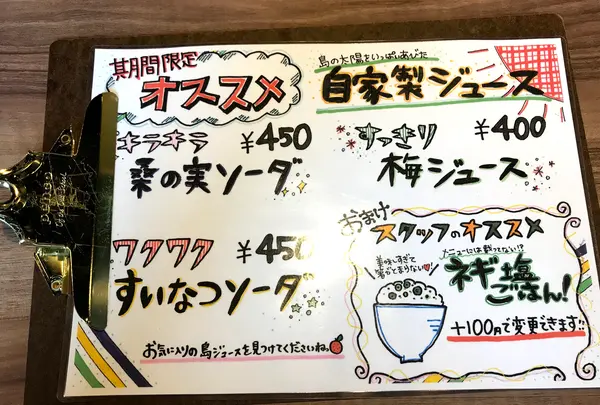 期間限定
オススメ
キラキラ ¥450
桑の実ソーダ
ワクワク ¥450
すいなつソーダ
お気に入りの島ジュースを見つけてくださいね。
島の太陽をいっぱいあびた
自家製ジュース
すっきり ¥400
梅ジュース
おまけ
スタッフのオススメ
美味しすぎて
箸がとまらない
メニューには載ってない!?
ネギ塩
ごはん!
+100円で変更できます!!